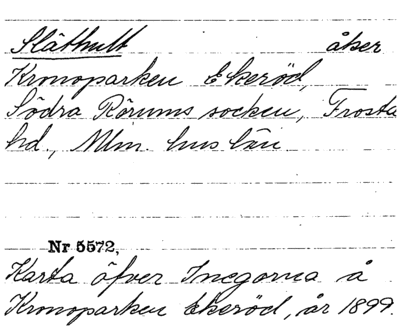 Slätthult åker
Kronoparken Ekeröd,
Södra Rörums socken, Frosta
hd., Mlm. hus län
Nr 5572,
Karta öfver Inegorna å
Kronoparken Ekeröd, år 1899.